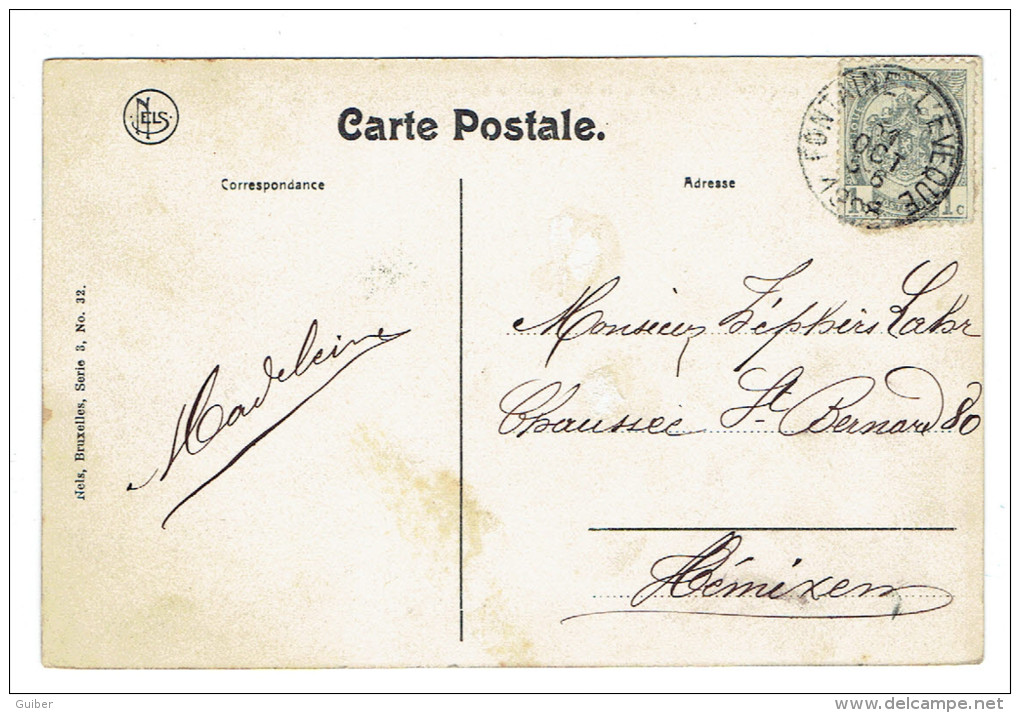 NELS
Carte Postale.
Correspondance
Adresse
FONTAINE-L'EVEQUE
OCT
1c
Nels, Bruxelles, Serie 3, No. 32.
Madeleine
Monsieur Zéphirs Lahr
Chaussée St Bernard 80
Hémixem
Guiber
www.delcampe.net